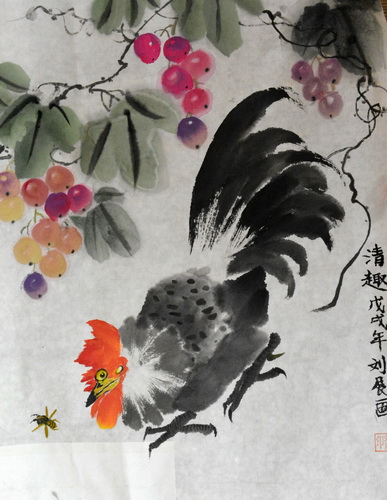 清趣戊戌年刘展画